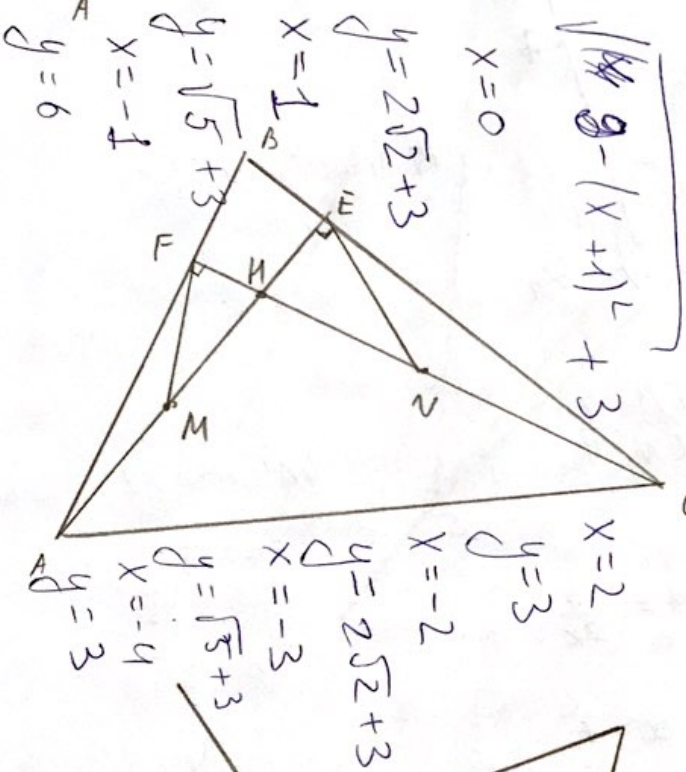 9 - (x + 1)² + 3
x = 0
y = 2√2 + 3
x = 1
y = √5 + 3
x = -1
y = 6
x = 2
y = 3
x = -2
y = 2√2 + 3
x = -3
y = √5 + 3
x = -4
y = 3
A
B
E
F
H
M
N
A